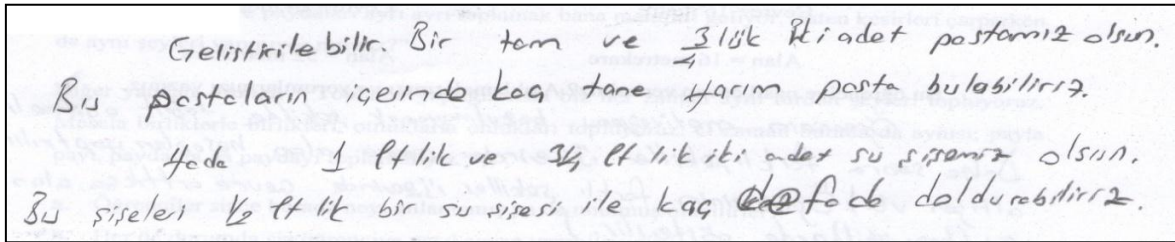 Geliştirilebilir. Bir tam ve 3/4 lük iki adet pastamız olsun.
Bu pastaların içerinde kaç tane yarım pasta bulabiliriz.
Yada 1 lt lik ve 3/4 lt lik iki adet su şişemiz olsun.
Bu şişeleri 1/2 lt lik bir su şişesi ile kaç defada doldurabiliriz.